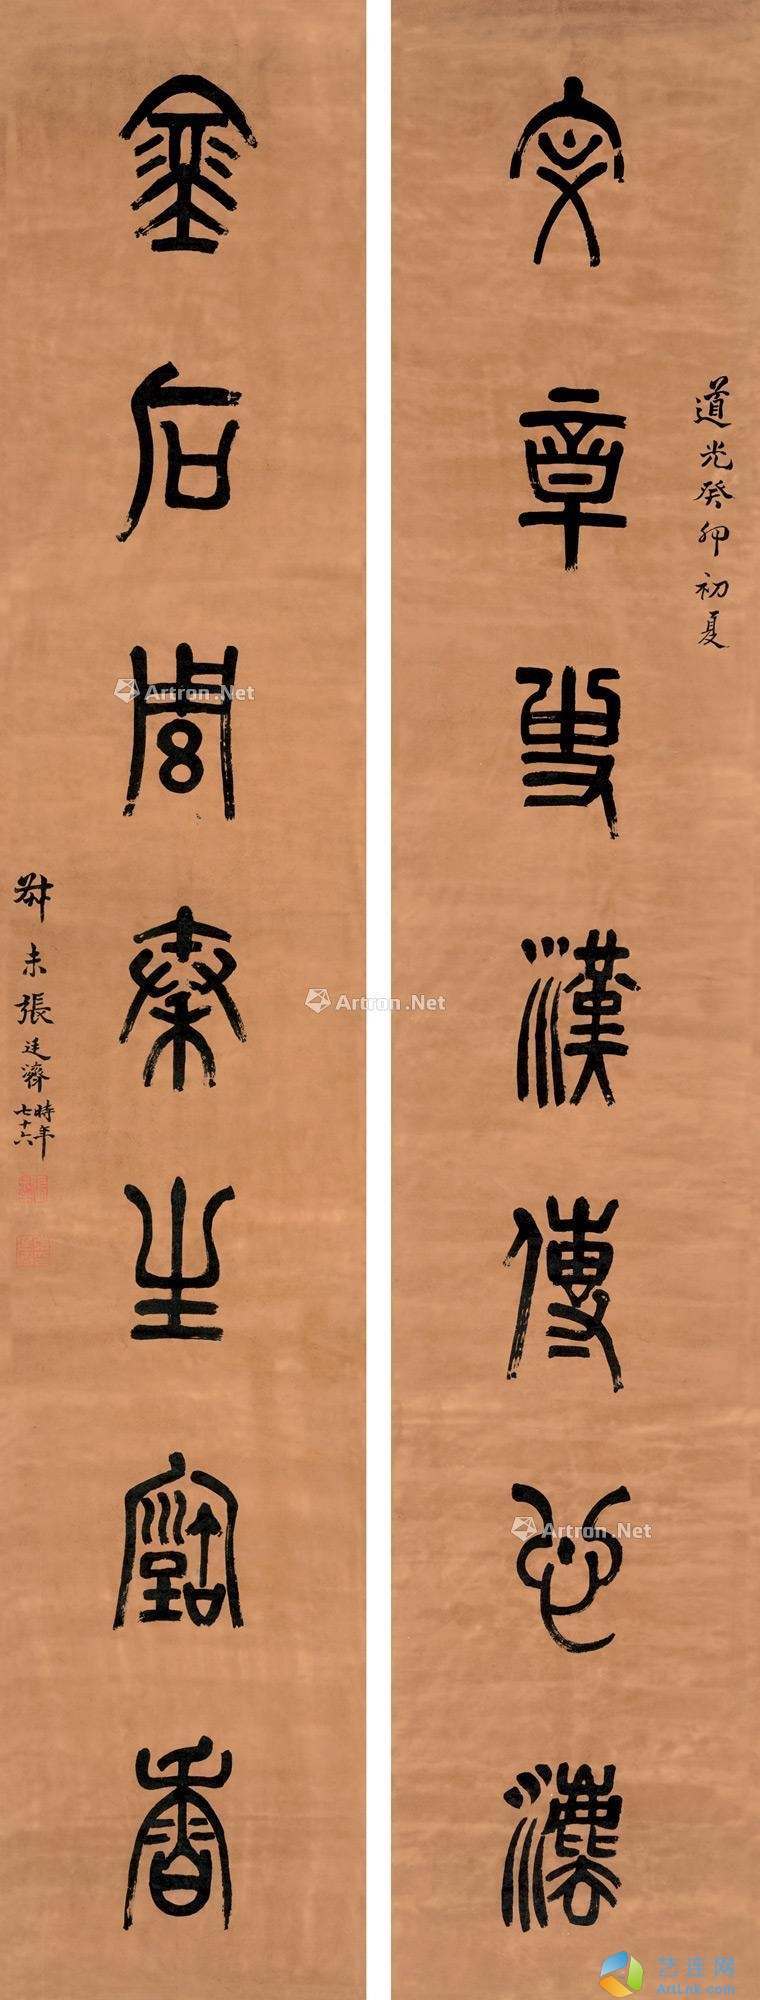 文章史漢傳心灋
道光癸卯初夏
金石周秦生古香
叔未張廷濟時年七十六
Artron.Net
Artron.Net
Artron.Net
艺连网
ArtLnk.com